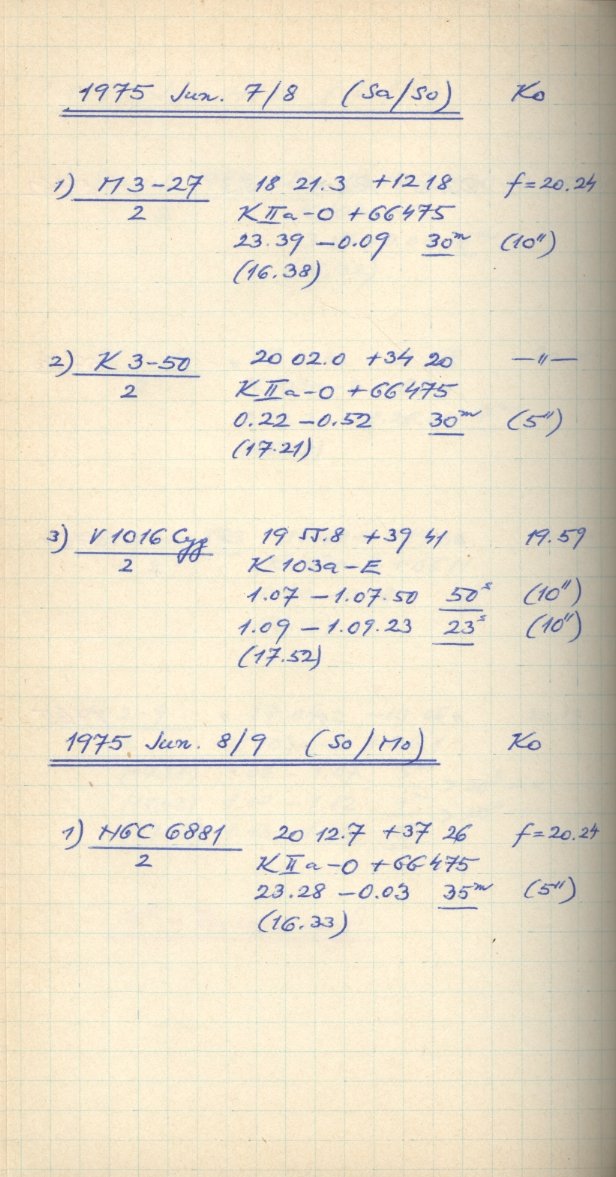 1975 Jun. 7/8 (Sa/So) Ko
1) M 3-27 18 21.3 +12 18 f=20.24
2 K II a-O +GG 475
23.39 – 0.09 30ᵐ (10")
(16.38)
2) K 3-50 20 02.0 +34 20 —"—
2 K II a-O +GG 475
0.22 – 0.52 30ᵐ (5")
(17.21)
3) V 1016 Cyg 19 55.8 +39 41 19.59
2 K 103a-E
1.07 – 1.07.50 50ˢ (10")
1.09 – 1.09.23 23ˢ (10")
(17.52)
1975 Jun. 8/9 (So/Mo) Ko
1) NGC 6881 20 12.7 +37 26 f=20.24
2 K II a-O +GG 475
23.28 – 0.03 35ᵐ (5")
(16.33)